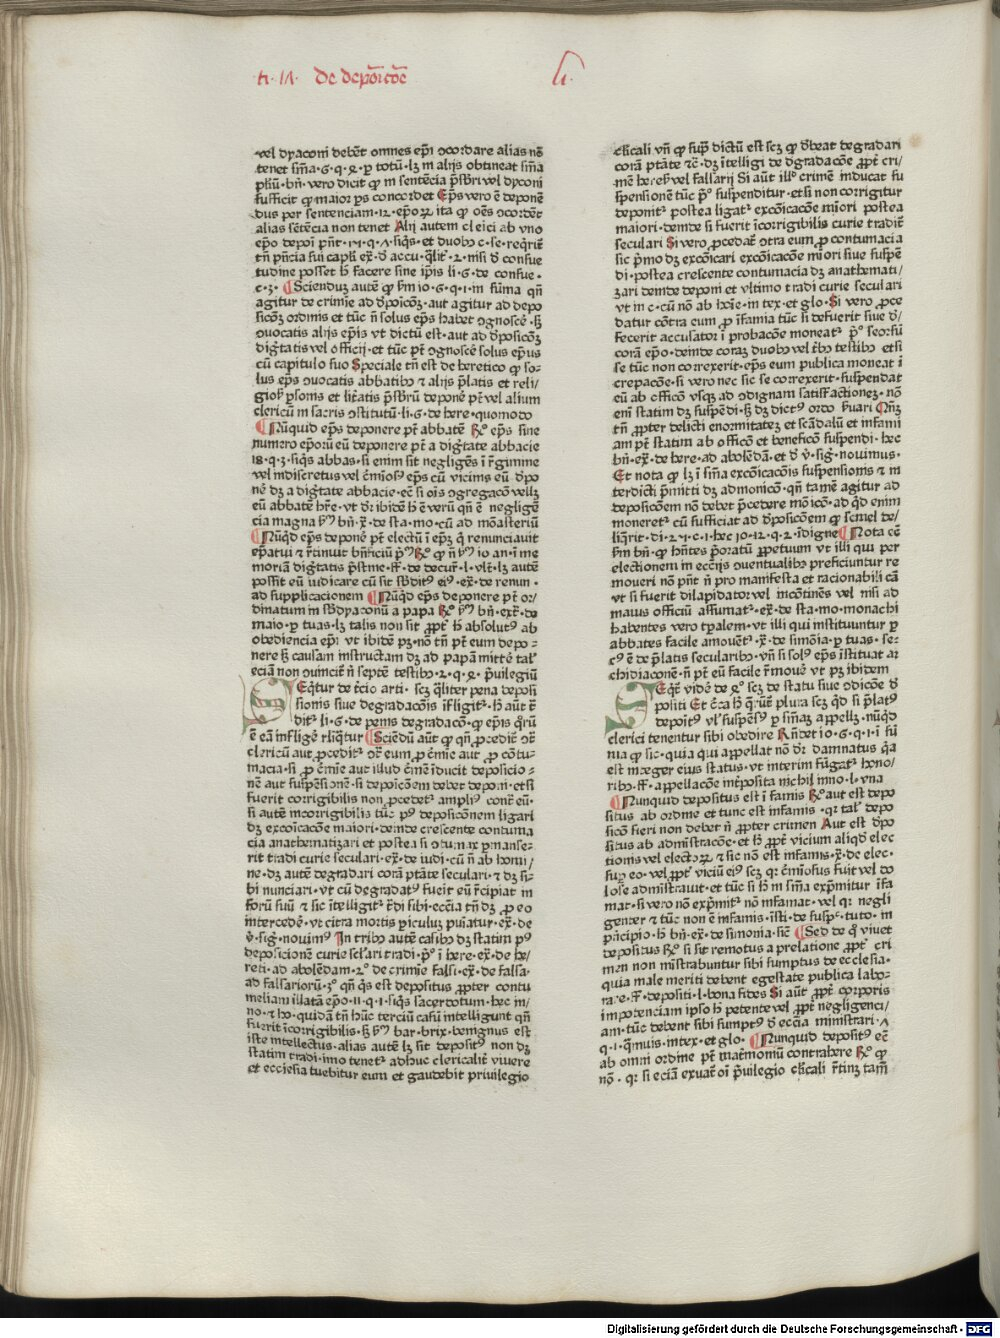 ti · 1Λ · De depōicōe
li.
vel dyaconi debēt omnes ep̄i ɔcordare alias nō
tenet sn̄ia · 6 · q̄ · ꝯ · ꝑ totū · lꝫ in alijs obtineat sn̄ia
pliū · bn̄ · vero dicit qꝫ in sentēcia p̄sbri vel dyconi
sufficit qꝫ maior ꝑs concordet Ep̄s vero ē deponē
dus per sentenciam · 12 · ep̄oꝝ ita qꝫ oēs ɔcordēt
alias sētēcia non tenet Alij autem cleici ab vno
ep̄o depoī pn̄t ·
tn̄ pn̄cia sui capl̄i
tudine posset h̄ facere sine ip̄is li · 6 · de consue ·
c · 3 · Scienduꝫ autē qꝫ
agitur de crimīe ad dpōicōꝫ · aut agitur ad depo
sicōꝫ ordinis et tūc n̄ solus ep̄s habet ɔgnoscē · sꝫ
ɔuocatis alijs ep̄is vt dictū est · aut ad dposicōꝫ
digtatis vel officij · et tūc pt̄ ɔgnoscē solus ep̄us
cū capitulo suo Speciale tn̄ est de heretico qꝫ so/
lus ep̄s ɔuocatis abbatibꝰ ⁊ alijs p̄latis et reli/
giosꝭ ꝑsonis et litt̄atis p̄sbrū deponē pt̄ vel alium
clericū in sacris ɔstitutū · li · 6 · de here · quomodo
Nūquid ep̄s deponere pt̄ abbatē Rꝰ ep̄s sine
numero ep̄orū eū deponere pt̄ a digtate abbacie
18 · q · 3 · siqͥs abbas · si enim sit negligēs ī r̄gimme
vel indiscretus
nē dꝫ a digtate abbacie · ec̄ si oīs ɔgregacō vellꝫ
eū abbatē hr̄e · vt dr̄ · ibidē h̄ ē verū qn̄ ē negligē
cia magna
Nūqd ep̄s deponē pt̄ electū ī ep̄ꝫ q̄ renunciauit
ep̄atui ⁊ r̄tinuit bn̄ficiū
moriā digtatis p̄stine · ff · de decur̄ · l · vlt̄ · lꝫ autē
possit eū iudicare cū sit sb̄ditꝰ eiꝰ · ex̄ · de renun ·
ad supplicacionem Nūqd ep̄s deponere pt̄ or/
dinatum in sb̄dyaconū a papa
maio · ꝑ tuas · lꝫ talis non sit ꝓpt̄ h̄ absolutꝰ ab
obediencia ep̄i · vt ibidē pꝫ · nō tn̄ pt̄ eum depo=
nere sꝫ causam instructam dꝫ ad papā mittē tal̄
eciā non ɔuincit̄ n̄ septē testibꝰ · 2 · q · ꝯ · p̄uilegiū
Seqͥtur de t̄cio arti · scꝫ qͣliter pena deposi
sionis siue degradacōis īfligit̄ · h̄ aūt r̄
dit̄ · li · 6 · de penis degradacō · qꝫ ep̄is qͦrū
ē eā infligē rliqͥtur Sciendū aūt qꝫ qn̄ ꝓcedit̄ ɔt̄
clericū aut ꝓcedit̄ ɔt̄ eum ꝓ c̄mīe aut ꝓ cōtu=
macia · si ꝓ c̄mīe aut illud c̄mē īducit deposicio=
nē aut suspēsionē · si depoicōem debet deponi · et si
fuerit corrigibilis non ꝓcedet̄ ampliꝰ contͣ eū ·
si autē incorrigibilis tūc pꝰ deposicōnem ligari
dꝫ excoicacōe maiori · deinde crescente contuma
cia anathematizari et postea si ɔtumax ꝑmanse=
rit tradi curie seculari · ex̄ · de iudi · cū n̄ ab homi/
ne · dꝫ autē degradari corā ptāte seculari · ⁊ dꝫ si=
bi nunciari · vt cū degradatꝰ fueit eū r̄cipiat in
forū suū ⁊ sic ītelligit̄ r̄di sibi · eccia tn̄ dꝫ ꝓ eo
intercedē · vt citra mortis ꝑiculuꝫ puīatur · ex̄ · de
v̄ · sig̅ · nouimꝰ In tribꝰ autē casibꝰ dꝫ statim pꝰ
deposicionē curie scl̄ari tradi · pͦ · ī here · ex̄ · de he/
reti · ad abolēdam · 2ͦ · de crimīe falsi · ex̄ · de falsa ·
ad falsarioꝝ · 3ͦ · qn̄ qͥs est depositus ꝓpter contu
meliam illatā ep̄o · 11 · q · 1 · siqͥs sacerdotum · hec in/
no · ⁊ hꝰ · quidā tn̄ hūc terciū casū intelligunt qn̄
fuerit īcorrigibilis · sꝫ
iste intellectus · alias autē lꝫ sit depositꝰ non dꝫ
statim tradi · imo tenet̄ adhuc clericalit̄ viuere
et ecclesia tuebitur eum et gaudebit priuilegio
cl̄icali vn̄ qꝫ supͣ dictū est scꝫ qꝫ dbeat degradari
corā ptāte ⁊c̄ · dꝫ ītelligi de dgradacōe ꝓpt̄ cri/
mē heresꝭ vel falsarij Si aūt illꝰ crimē inducat su
spensionē tūc pͦ suspenditur · et si non corrigitur
deponit̄ postea ligat̄ excōicacōe mīori postea
maiori · deinde si fuerit īcorrigibilis curie tradit̄
seculari Si vero ꝓcedat̄ ɔtra eum ꝓ contumacia
sic pͥmo dꝫ excōicari excōicacōe mīori siue suspē
di · postea crescente contumacia dꝫ anathemati/
zari deinde deponi et vltimo tradi curie seculari
vt in c · cū nō ab hoīe · in tex · et glo · Si vero ꝓce
datur cōtra eum ꝓ īfamia tūc si defuerit siue d/
fecerit accusator ī probacōne moneat̄ pͦ seorsū
corā ep̄o · deinde coraꝫ duobꝰ vel t̄bꝰ testibꝰ et si
se tūc non correxerit · ep̄s eum publica moneat ī
crepacōe · si vero nec sic se correxerit · suspendat
eū ab officō vsqꝫ ad ɔdignam satisfactioneꝫ · nō
enī statim dꝫ suspēdi · sꝫ dꝫ dictꝰ ordo
tn̄ ꝓpter delicti enormitateꝫ et scādalū et infami
am pt̄ statim ab officō et beneficō suspendi · hec
bn̄ · ex̄ · de here · ad abolēdā · et d̄ v̄ · sig̅ · nouimus ·
Et nota qꝫ lꝫ ī sn̄ia excōicacōis suspensionis ⁊ in
terdicti p̄mitti dꝫ admonicō · qn̄ tamē agitur ad
deposicōem nō debet p̄cedere mōicō · ad qͥd enim
moneret̄ cū sufficiat ad dposicōem qꝫ semel de/
liqͥrit · di · 2 · 1 · c · 1 · hec 10 · 12 · q · 2 · īdigne Nota ec̄
sm̄ bn̄ · qꝫ hn̄tes p̄oratū ꝑpetuum vt illi qui per
electionem in ecclijs ɔuentualibꝰ preficiuntur re
moueri nō pn̄t n̄ pro manifesta et racionabili cā
vt si fuerit dilapidator vel incōtinēs vel nisi ad
maius officiū assumat̄ · ex̄ · de sta · mo · monachi
habentes vero tꝑalem · vt illi qui instituuntur ꝑ
abbates facile amouēt̄ · x̄ · de simōia · ꝑ tuas · se/
cꝰ ē de p̄latis secularibꝰ · vn̄ si solꝰ ep̄s īstituat ar
chidiaconē · n̄ pt̄ eū facile r̄mouē vt pꝫ ibidem
Seqͥt̄ vidē de ꝯͦ scꝫ de statu siue ɔdicōe d̄
positi
depoitꝰ vl̓ suspēsꝰ ꝑ sīmaꝫ appellꝫ · nūqd
clerici tenentur sibi obedire Rn̄det io · 6 · q · 1 · ī sū
ma qꝫ sic · quia qui appellat nō dr̄ damnatus qͣa
est integer eius status · vt interim fūgat̄ hono/
ribꝰ · ff · appellacōe īnt̄posita nichil inno · l · vna
Nunquid depositus est ī famis Rꝰ aut est depo
situs ab ordine et tunc est infamis · qꝛ tal̄ depo
sicō fieri non debet n̄ ꝓpter crimen Aut est dpo
situs ab admīstracōe · et h̄ ꝓpt̄ vicium aliqd̄ elec
tionis vel electoꝝ ⁊ sic nō est infamis · x̄ · de elec ·
vel ꝓpt̄ viciū eiꝰ scꝫ qꝛ c̄miōsus fuit vel do
lose admīstrauit · et tūc si h̄ in sn̄ia exp̄mitur īfa
mat · si vero nō exp̄mit̄ nō infamat · vel qꝛ negli
genter ⁊ tūc non ē infamis · īsti · de suspͨ · tuto · in
pͥncipio · h̄ bn̄ · ex̄ · de simonia · sic̄ Sed de qͦ viuet
depositus Rꝰ si sit remotus a prelatione ꝓpt̄ cri
men non mīstrabuntur sibi sumptus de ecclesia ·
quia male meriti debent egestate publica labo=
rare · ff · depositi · l · bona fides Si aūt ꝓpt̄ corporis
impotenciam ipso h̄ petente vel ꝓpt̄ negligenci/
am · tūc debent sibi sumptꝰ d̄ eccīa ministrari · Λ
q · 1 · qͣmuis · in tex · et glo · Nunquid depositꝰ ec̄
ab omni ordine pt̄ matr̄moniū contrahere Rꝰ qꝫ
nō · qꝛ si eciā exuat̄ oī p̄uilegio cl̄icali r̄tinꝫ tam̄
Digitalisierung gefördert durch die Deutsche Forschungsgemeinschaft - DFG